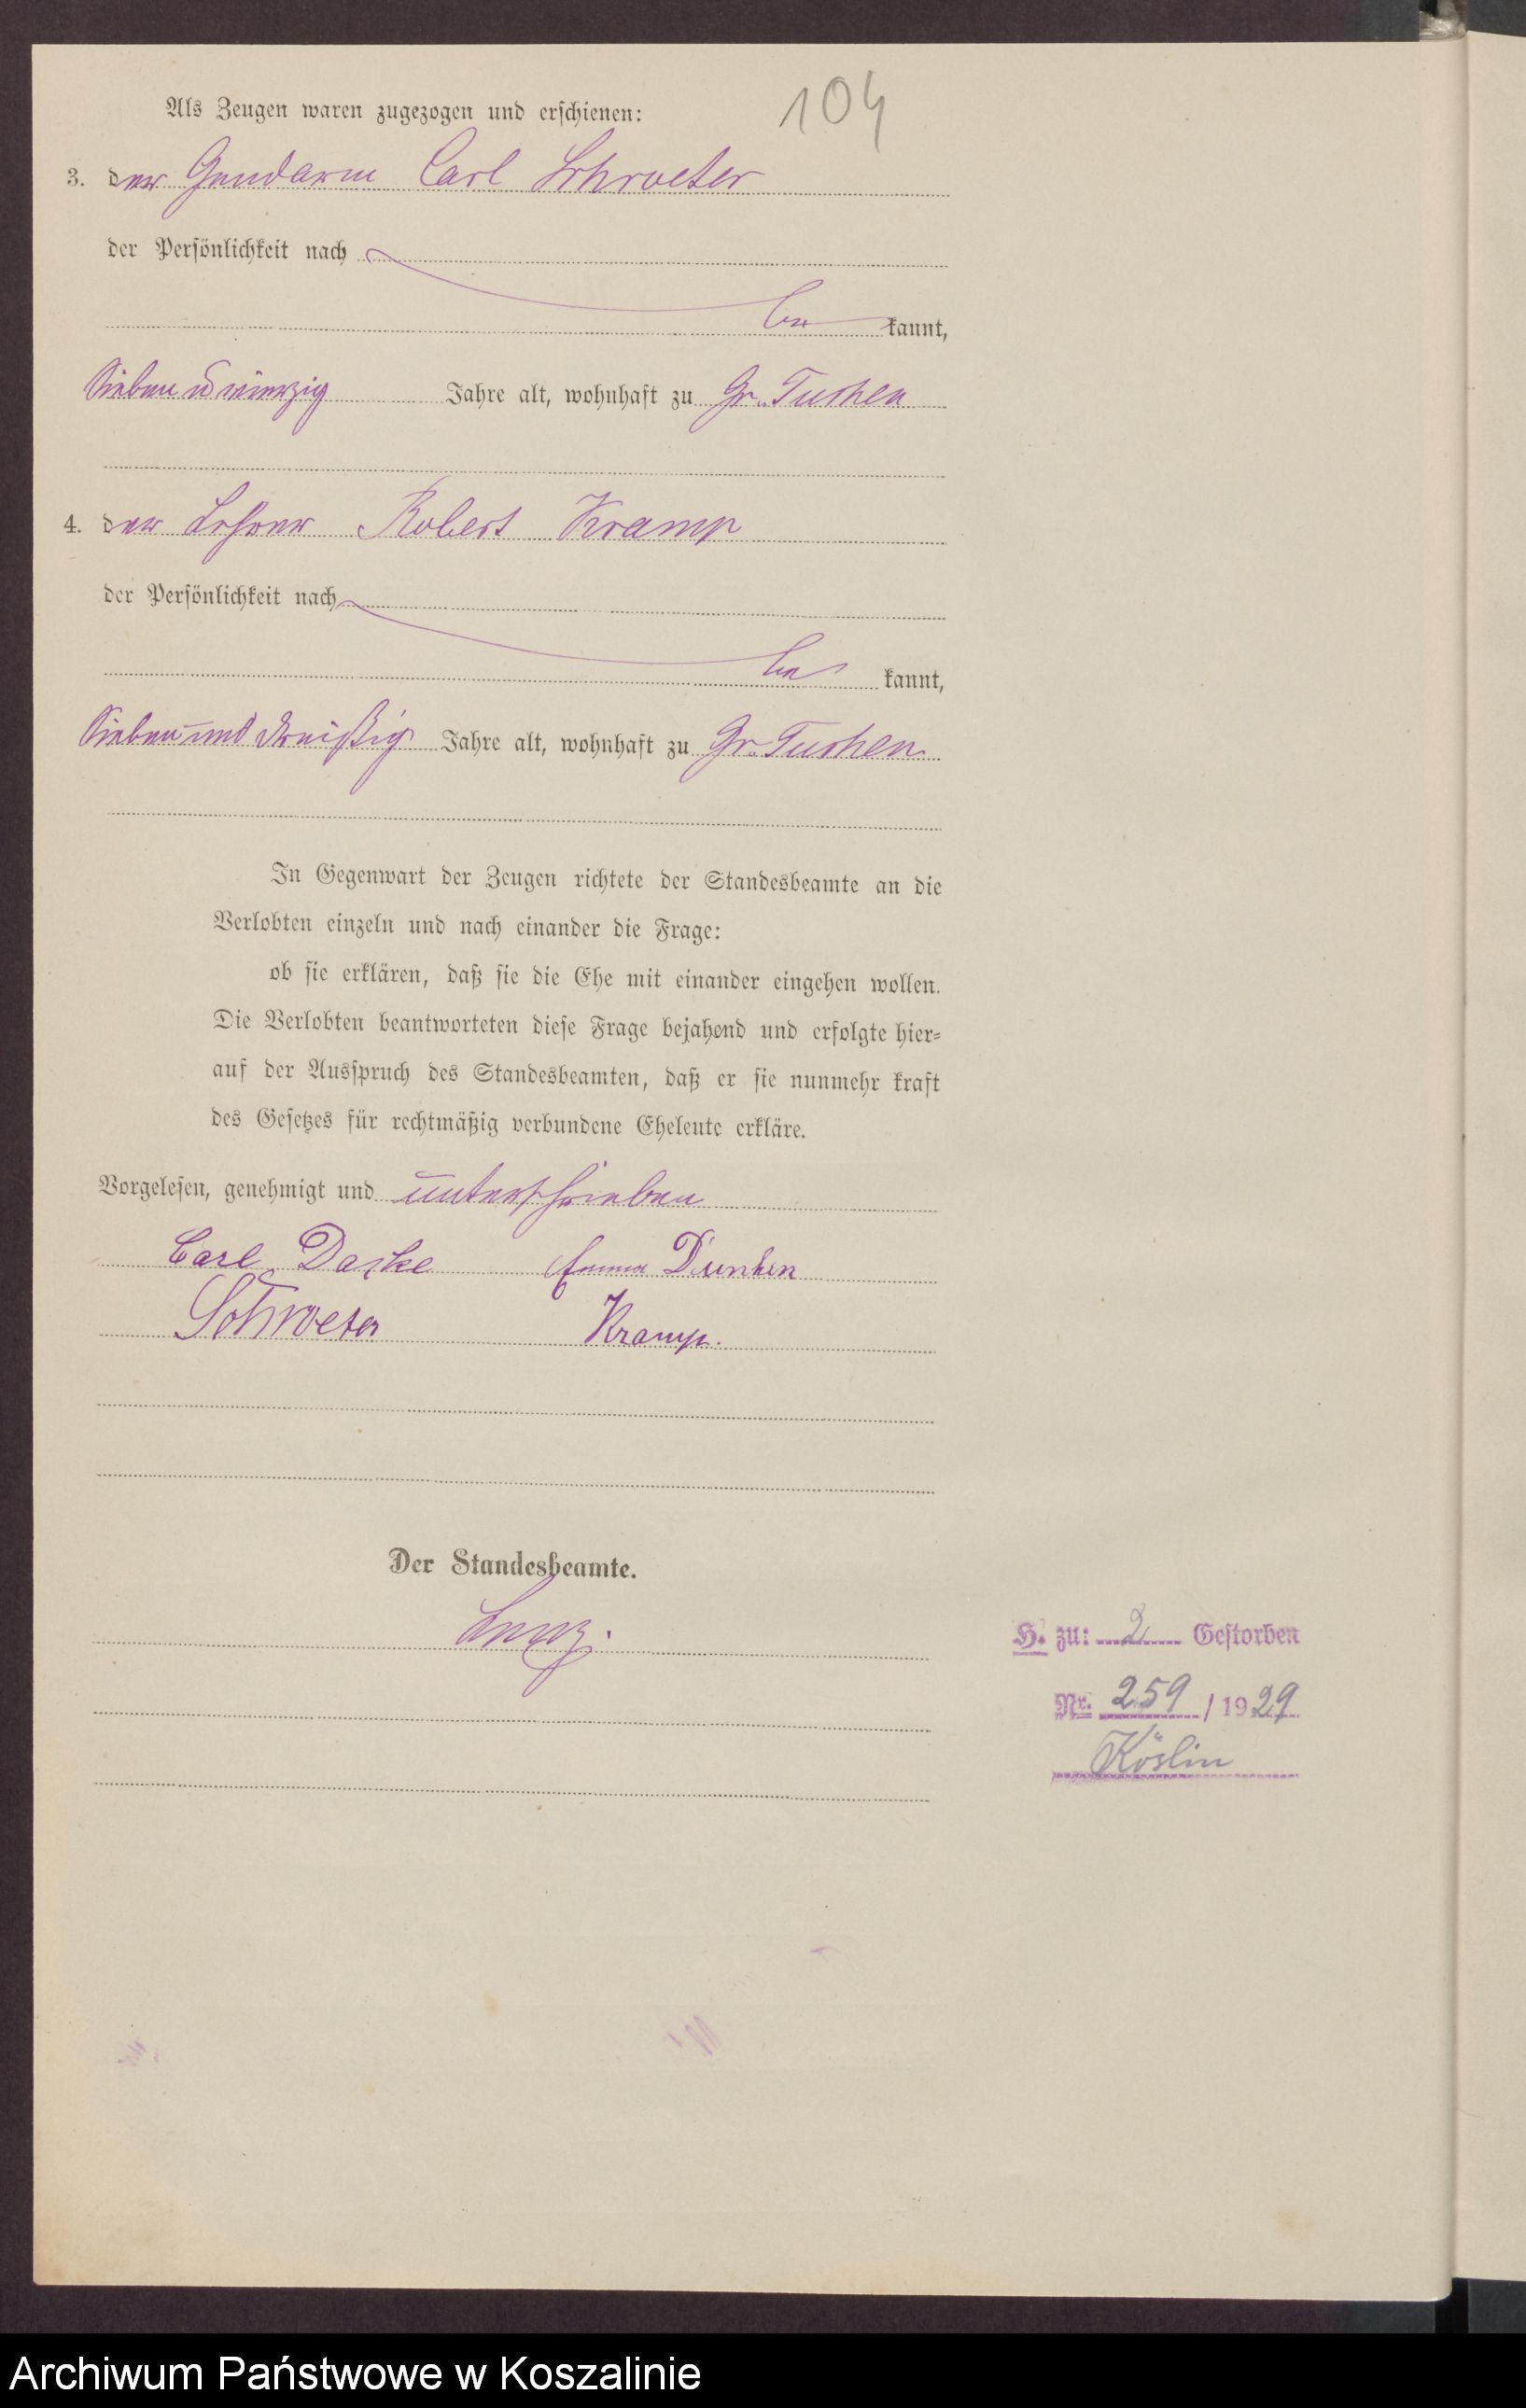 104
Als Zeugen waren zugezogen und erschienen:
3. der Gendarm Carl Schroeter
der Persönlichkeit nach
be kannt,
Sieben u vierzig Jahre alt, wohnhaft zu Gr. Tuchen
4. der Lehrer Robert Kramp
der Persönlichkeit nach
be kannt,
Sieben und dreißig Jahre alt, wohnhaft zu Gr. Tuchen
In Gegenwart der Zeugen richtete der Standesbeamte an die
Verlobten einzeln und nach einander die Frage:
ob sie erklären, daß sie die Ehe mit einander eingehen wollen.
Die Verlobten beantworteten diese Frage bejahend und erfolgte hier=
auf der Ausspruch des Standesbeamten, daß er sie nunmehr kraft
des Gesetzes für rechtmäßig verbundene Eheleute erkläre.
Vorgelesen, genehmigt und unterschrieben
Carl Daske Emma
Schroeter Kramp.
Der Standesbeamte.
H. zu: 2 Gestorben
Nr. 259 / 1929
Köslin
Archiwum Państwowe w Koszalinie